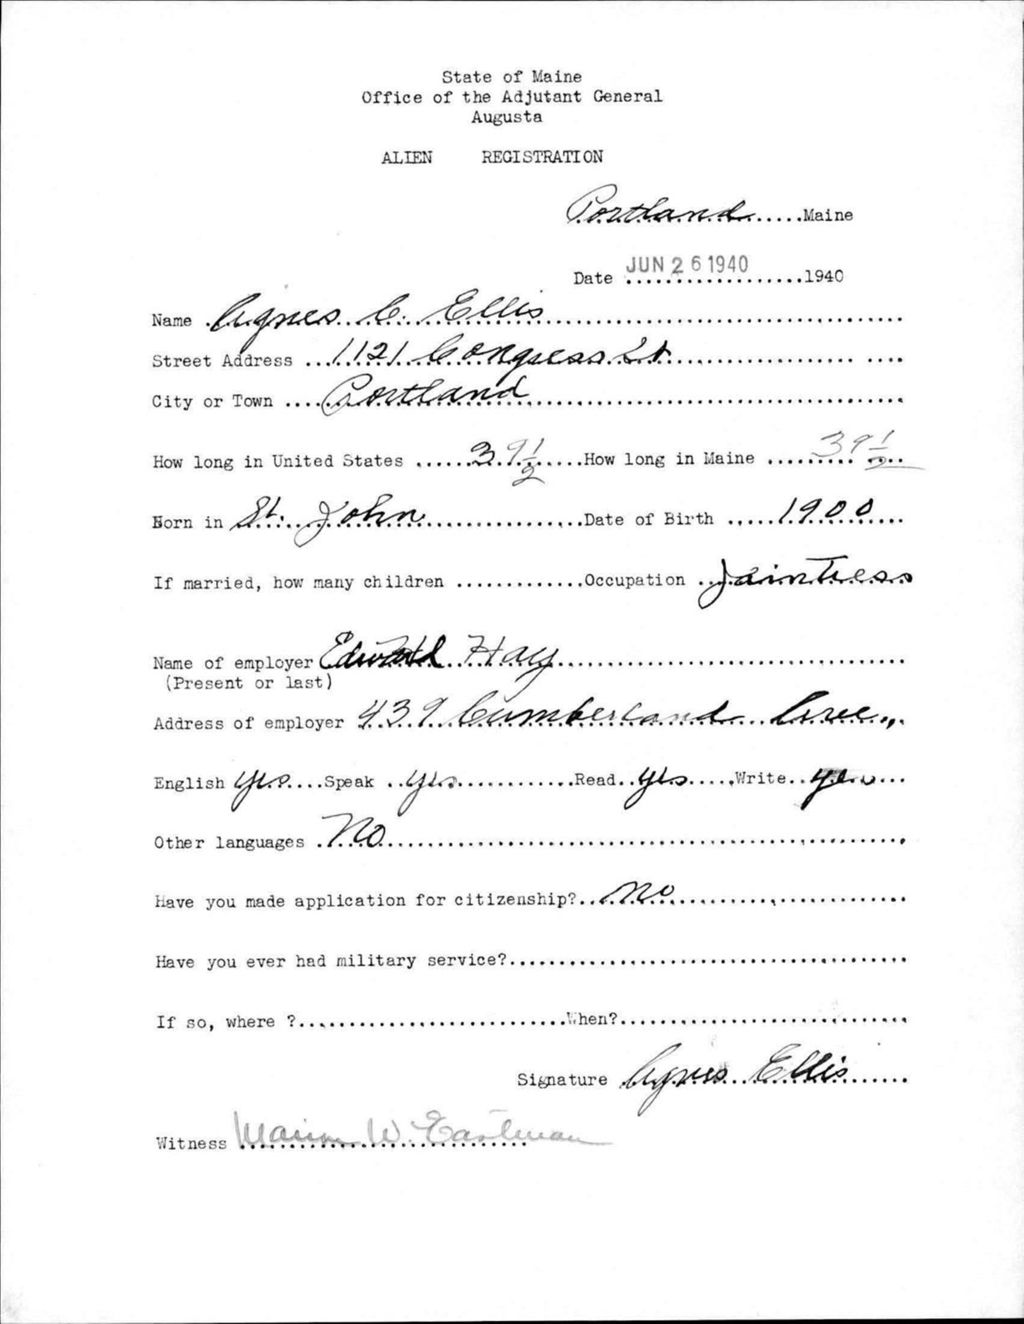 State of Maine
Office of the Adjutant General
Augusta
ALIEN REGISTRATION
Portland.....Maine
Date JUN 26 1940..................1940
Name .Agnes C. Ellis....................................
Street Address ...1121 Congress St.............
City or Town ....Portland....................................
How long in United States ......39 1/2.....How long in Maine .........39 1/2..
Born in St. John................Date of Birth .....1900....
If married, how many children .............Occupation ..Jaintress
Name of employer Edward Hay.................................
(Present or last)
Address of employer 439 Cumberland Ave.,.
English yes....Speak ..yes............Read..yes.....Write..yes...
Other languages .No..................................................
Have you made application for citizenship?..No........................
Have you ever had military service?.......................................
If so, where ?..........................When?............................
Signature Agnes Ellis......
Witness Marion W. Eastman